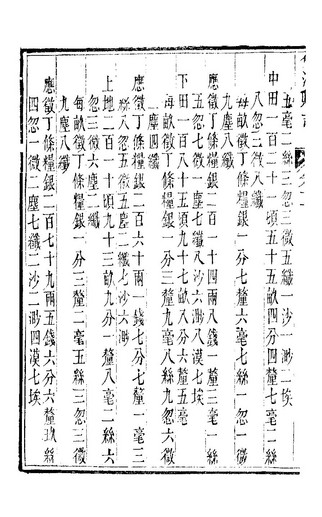 五毫二絲三忽三微五纖一沙一渺二埃
中田一百二十一頃五十五畝四分四釐七毫二絲
八忽二微八纖
每畝徵丁條糧銀一分七釐六毫七絲一忽一微
九塵八纖
應徵丁條糧銀二百一十四兩八錢一分三毫一絲
五忽七微七塵七纖八沙六渺八漠七埃
下田一百八十五頃九十七畝八分六釐五毫
每畝徵丁條糧銀一分三釐九毫八絲九忽六微
二塵四纖
應徵丁條糧銀二百六十兩一錢七分七釐一毫三
絲八忽五微五塵二纖七沙六渺
上地二百一十頃九十三畝九分一釐八毫二絲六
忽三微六塵二纖
每畝徵丁條糧銀一分三釐二毫五絲三忽三微
九塵八纖
應徵丁條糧銀二百七十九兩五錢六分六釐玖絲
四忽一微二塵七纖二沙二渺四漠七埃